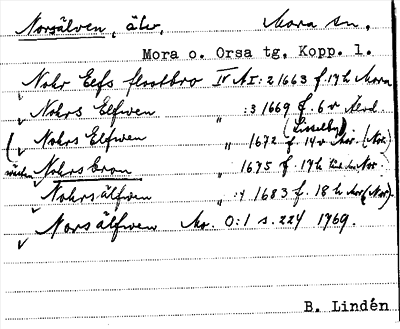 Norsälven, älv, Mora sn,
Mora o. Orsa tg, Kopp. l.
Nohr Eefs floatbro IV AI:2 1663 f. 17 h Mora
Nohrs Elfwen " :3 1669 f. 6 v
(Lisselby)
( Nohrs Elfwen " 1672 f. 14 v Mor. (Nor.)
Nohrsbron " 1675 f. 17 h Nor.
Nohrsälfwen " :4 1683 f. 18 h Mor (Nor).
Norsälfwen Mo. O:1 s. 224 1769.
B. Lindén